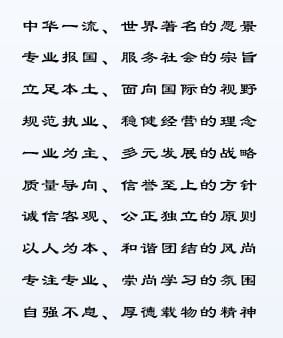 中华一流、世界著名的愿景
专业报国、服务社会的宗旨
立足本土、面向国际的视野
规范执业、稳健经营的理念
一业为主、多元发展的战略
质量导向、信誉至上的方针
诚信客观、公正独立的原则
以人为本、和谐团结的风尚
专注专业、崇尚学习的氛围
自强不息、厚德载物的精神